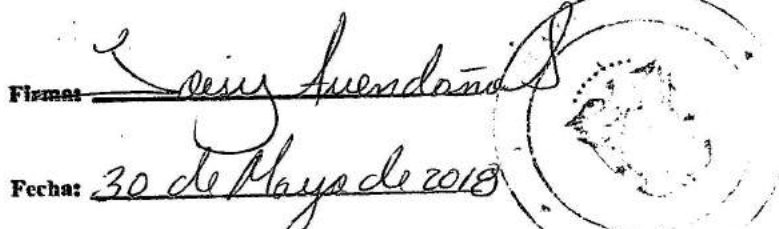 Firma: Avendaño S
Fecha: 30 de Mayo de 2018